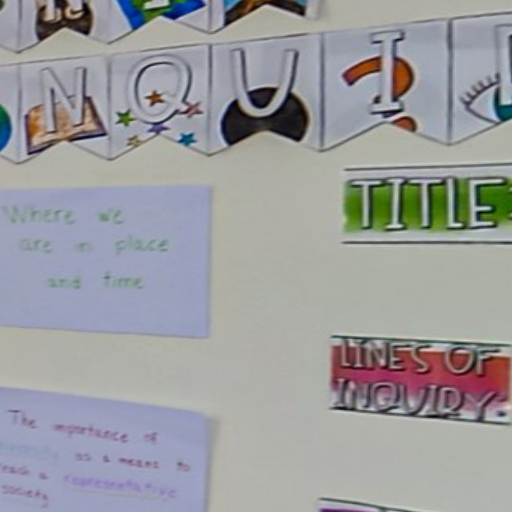 NQUI
TITLE:
Where we
are in place
and time
LINES OF
INQUIRY:
The importance of
as a means to
reach a representative
society